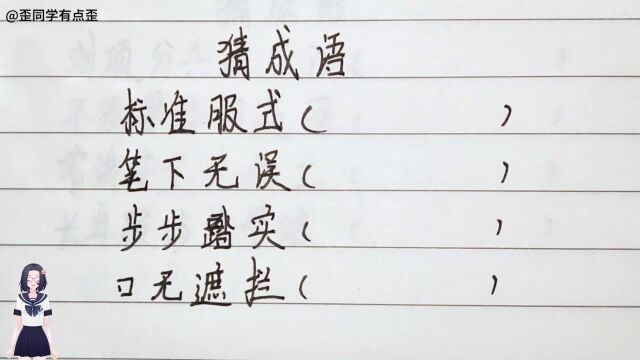 @歪同学有点歪
猜成语
标准服式（ ）
笔下无误（ ）
步步踏实（ ）
口无遮拦（ ）